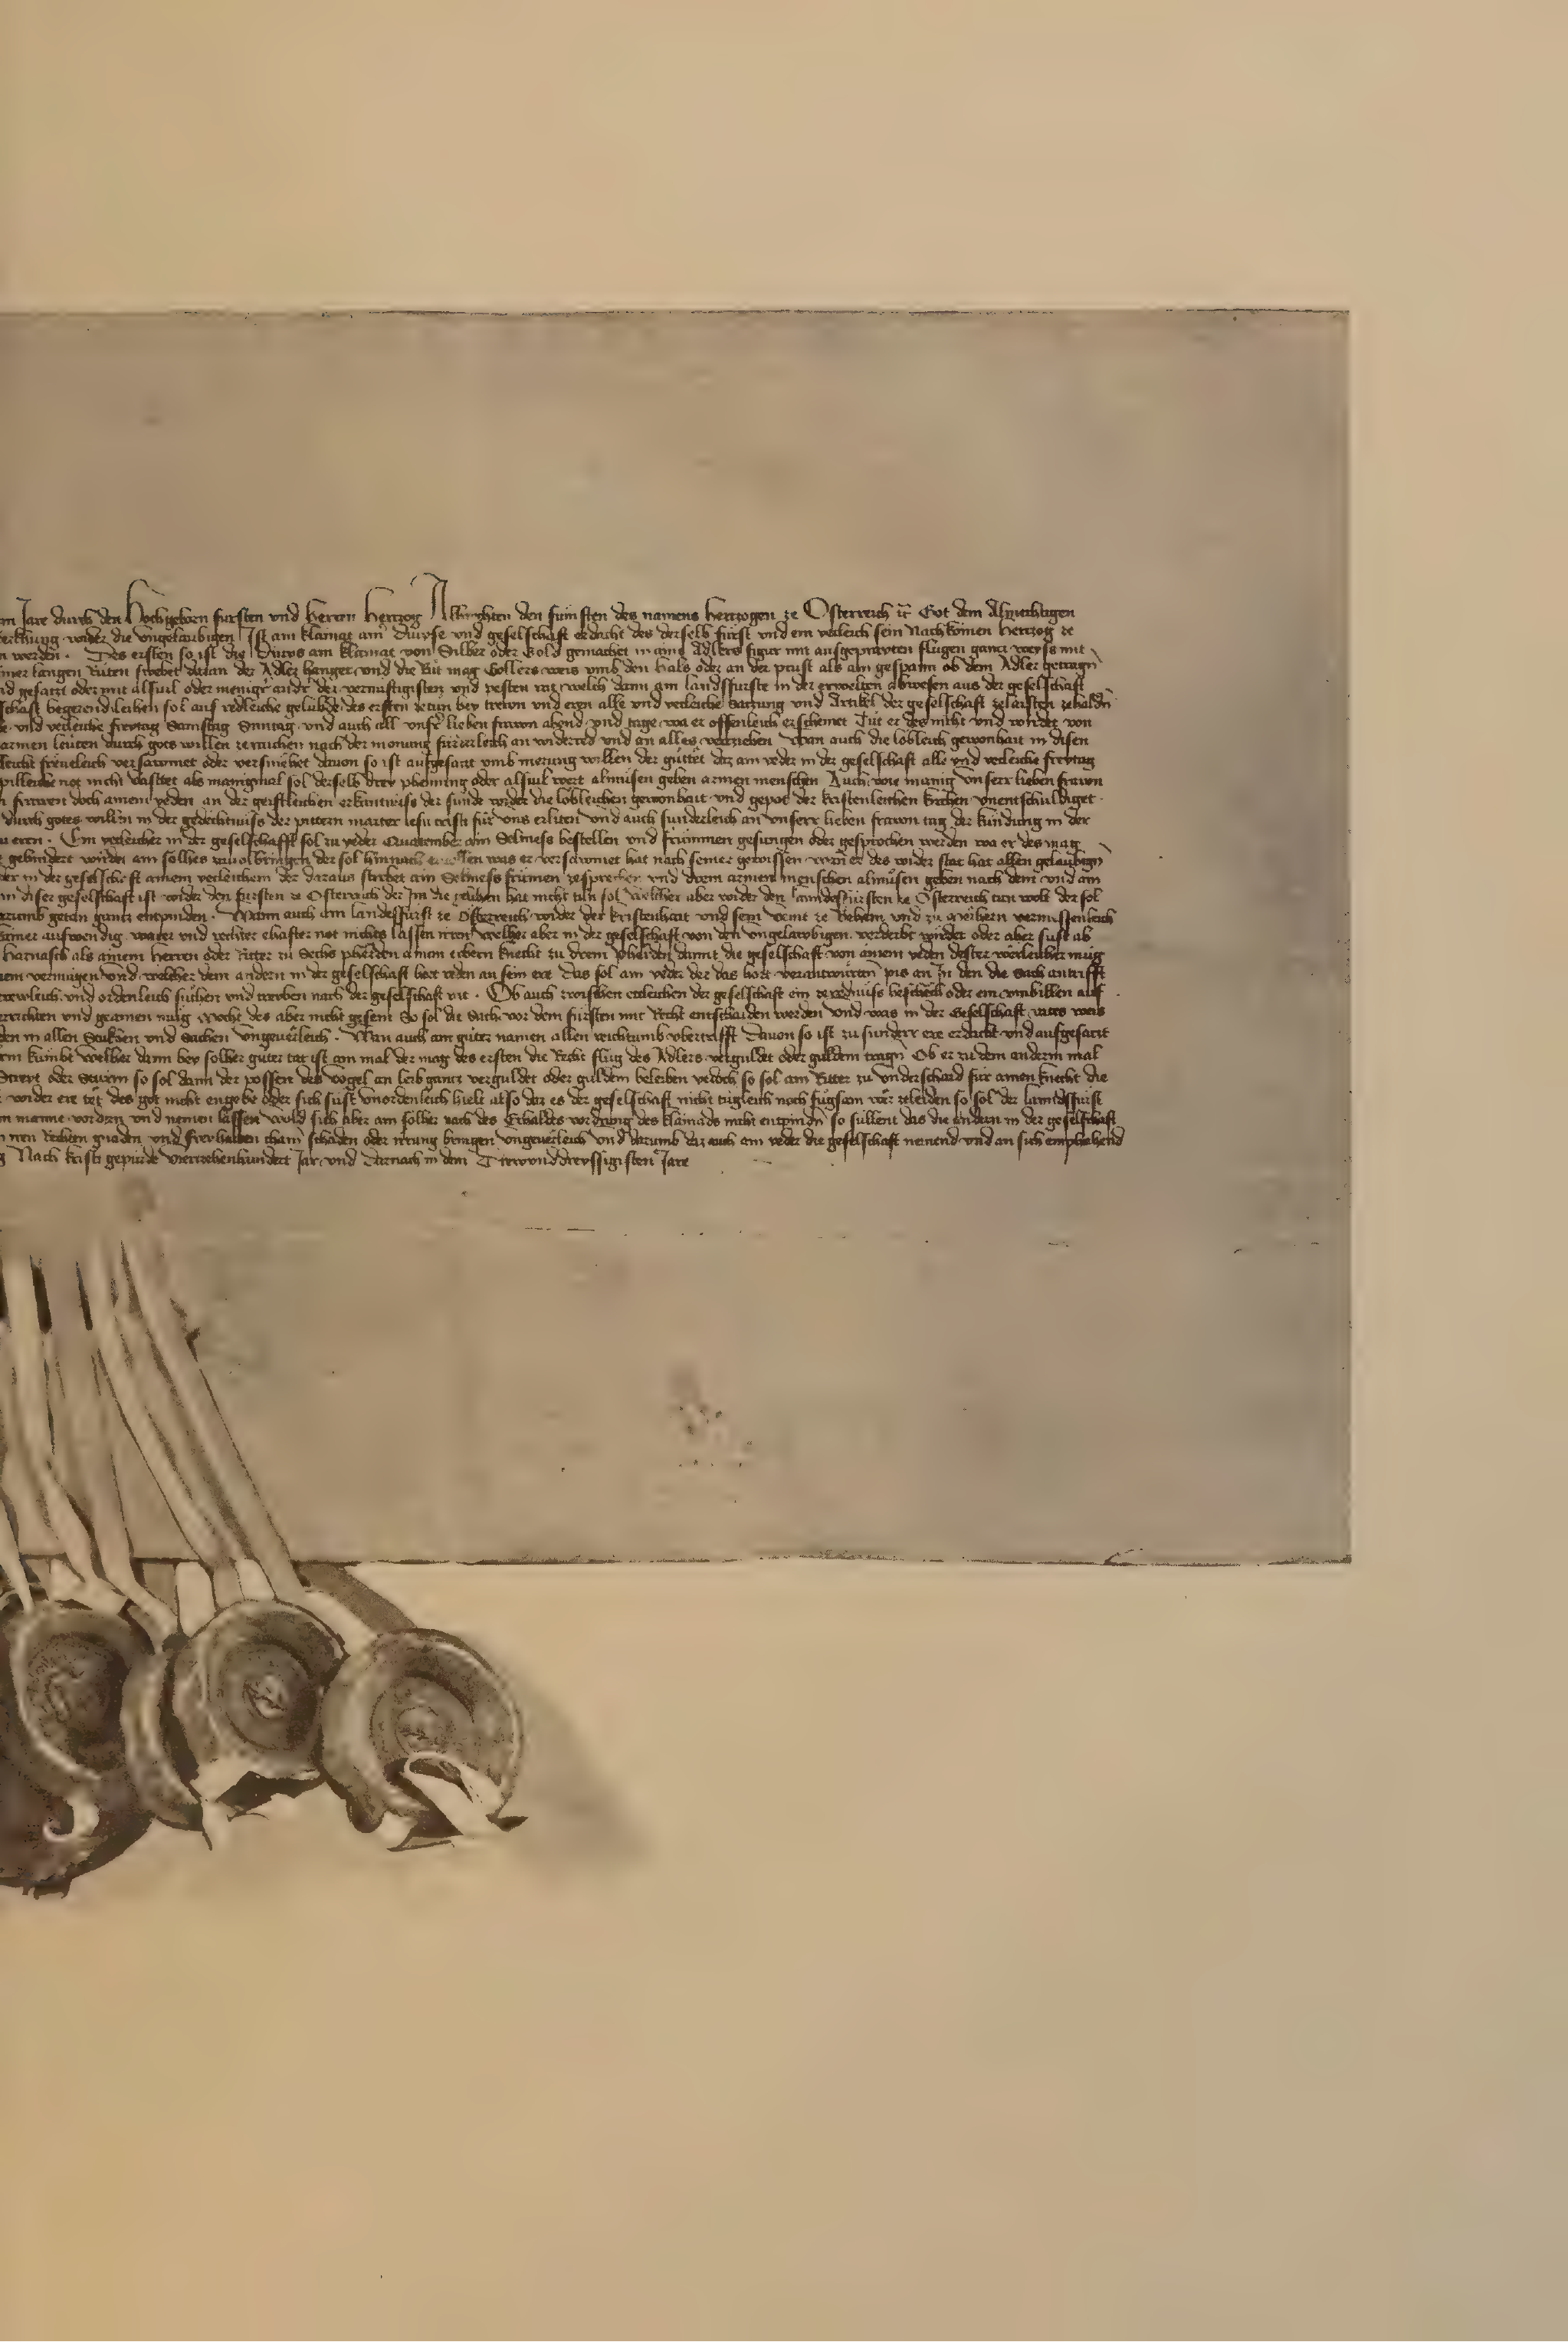 Jare durch den Hochgeborn fursten und herrn hertzog Albrechten den fumften des namens hertzogen ze Osterreich Got dem Almechtigen
wider die ungelaubigen Ist am klainat am und geselschaft erdacht des derselb furst und ein yecleich sein Nachkomen hertzog ze
werden . Des ersten so ist die am klainat von Silber oder Gold gemachet in ains Adlers figur mit ausgeprayten flugen gancz weyss mit
langen Ruten strebet daran der Adler hanget und die Rut mag Gollers weis umb den hals oder an der prust als am gespann ob dem Adler getragn
gesaczt oder mit alsuil oder meniger andr der vernuftigisten und pesten welch dann am landsfurste in der erwelten abwesen aus der geselschaft
begerend leihen sol auf redleiche gelubde des ersten zetun bey trewn und eren alle und yecleiche Saczung und Artikel der geselschaft zelaisten zehaldn
und yecleiche freytag Samstag Suntag und auch all unsr lieben frawn abend und tage wa er offenleich erschemet Tut er des nicht und wirdet von
armen leuten durch gots willen nach der monung an widerred und an alles Wan auch die lobleich gewonhait in disen
versawmet oder versmehet dauon so ist aufgesaczt umb merung willen der guttet daz am yeder in der geselschaft alle und yecleiche freytag
not nicht vasttet als manigmal sol derselb drey phenning oder alsuil wert almusen geben armen menschen Auch wie manig unserr lieben frawn
frawen doch amem yeden an der geistleichen erkantnuss der sunde wider die lobleichen gewonhait und gepot der kristenleichen kirchen unentschuldiget .
durch gotes willen in der gedechtnuss der pittern marter Iesu cristi fur uns erliten und auch sunderleich an unserr lieben frawn tag der kundung in der
eren . Ein yecleicher in der geselschafft sol zu yeder Quattember ain Selmess bestellen und frummen gesungen oder gesprochen werden wa er des mag
gehindert wurden am solhes zuuolbringen der sol hinnach was er versawmet hat nach seiner gewissen wan er des wider stat hat allen gelaubign
in der geselschaft amem yecleichem der daraus stirbet ain Selmess frumen zesprechen und drein armen menschen almusen geben nach dem und am
diser geselschaft ist wider den fursten ze Osterreich der im die hat nicht tun sol Welcher aber wider den Lanndesfursten ze Osterreich tun wolt der sol
getan gancz enpinden . Wann auch am landesfurst ze Osterreich wider der kristenhait und sein veint ze Behem und zu Merhern
aufwendig und ehafter not nichts lassen irren Welher aber in der geselschaft von den ungelawbigen verderbt wirdet oder aber sust ab
harnasch als amem herren oder Ritter zu Sechs pherden amem erbern knecht zu drein pherden damit die geselschaft von amem yeden dester mug
vermugen und welcher dem andern in der geselschaft hort reden an sein ere das sol am yeder der das hort verantwurten pis an In den die sach antrifft
und ordenleich suchen und treyben nach der geselschaft rat . Ob auch zwischen ettleichen der geselschaft ein beschech oder ein unwillen auf
und geainen mug Mocht des aber nicht gesein So sol die Sach vor dem fursten mit Recht entschaiden werden und was in der Geselschaft rates weis
in allen Stukchen und Sachen ungeuerleich . Wan auch am guter namen allen reichtumb ubertrifft Dauon so ist zu sunderr ere erdacht und aufgesaczt
kumbt Welher dann bey solher guter tat ist am mal der mag des ersten die Recht flug des Adlers verguldet oder guldem tragn Ob er zu dem andern mal
Streyt oder Sturm so sol dann der possen des vogel an leib gancz verguldet oder guldem beleiben yedoch so sol am Ritter zu underschaid fur amen knecht die
wider ere tet des got nicht engebe oder sich sust unordenleich hielt also daz es der geselschaft nicht tugleich noch fugsam wer zeleiden so sol der lanndsfurst
manne vordern und nemen lassen Wold sich aber am solher nach des Erhaldes vordrung des klainads nicht enpindn so sullent das die andern in der geselschaft
iren Rechten gnaden und freyhaiten chain schaden oder irrung bringen ungeuerleich Und darumb daz auch am yeder die geselschaft nemend und an sich emphahend
Nach kristi gepurde vierczehenhundert Jar und darnach in dem Drewunddreyssigisten Jare